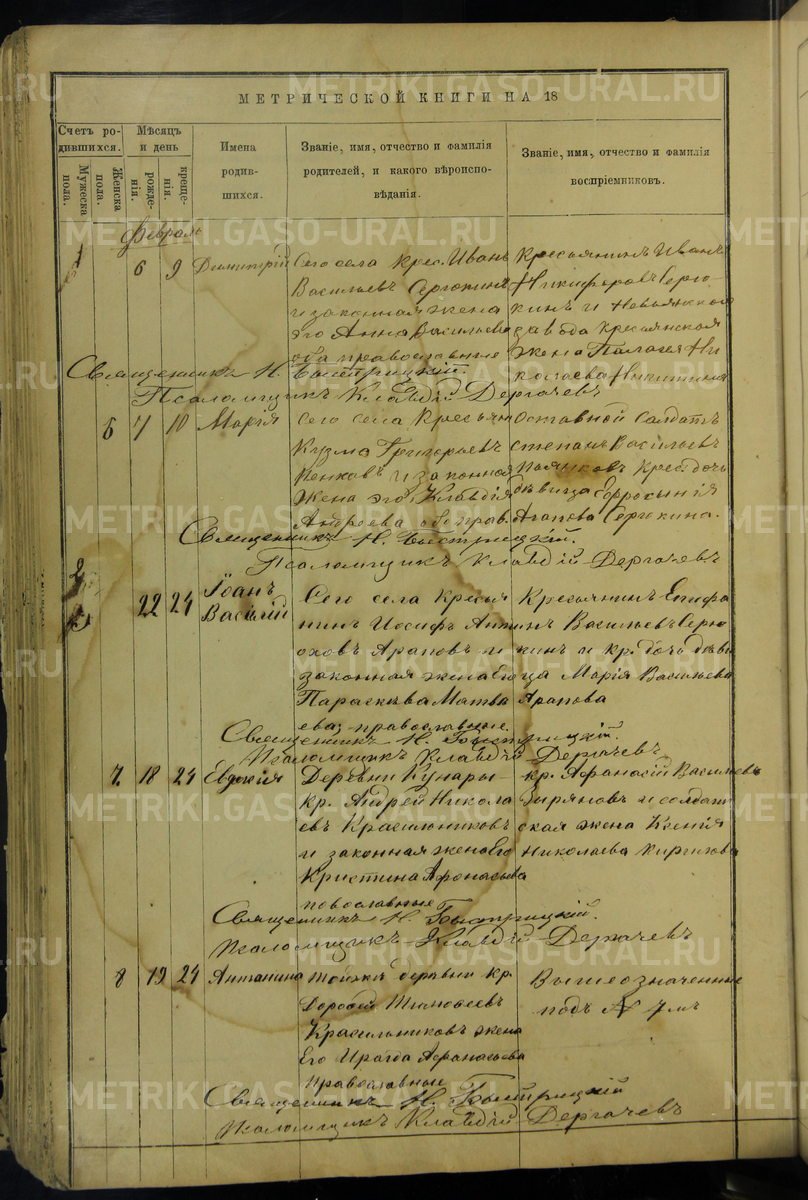 МЕТРИЧЕСКОЙ КНИГИ НА 18
Счетъ ро-
дившихся.
Мужеска
пола.
Женска
пола.
Мѣсяцъ
и день
рожде-
нія.
креще-
нія.
Имена
родив-
шихся.
Званіе, имя, отчество и фамилія
родителей, и какого вѣроиспо-
вѣданія.
Званіе, имя, отчество и фамилія
воспріемниковъ.
Февраль
6 9 Димитрій
Сего села крес. Иванъ
Васильевъ Серюкинъ
и законная жена
его Анна Васильева
оба православные
Крестьянинъ Иванъ
Никифоровъ Серю-
кинъ и Невьянскаго
завода крестьянская
жена Палагея Ни
колаева Никитина
Священникъ Н. Быстрицкій.
Псаломщикъ Клавдій Дергачевъ
6 7 10 Марія
Сего села крестьян
Кузма Григорьевъ
Пенковъ и законная
жена его Клавдія
Андреева об. прав.
Отставной солдатъ
Степанъ Васильевъ
крес. дочь
дѣвица Ефросинія
Агапова Серюкина.
Священникъ Н. Быстрицкій.
Псаломщикъ Клавдій Дергачевъ
22 24 Іоанъ
Василій
Сего села кресья
нинъ Иосифъ Анти
оховъ Араповъ и
законная жена Его
Параскева Матве
ева православные.
Крестьянинъ Епифа
нъ Васильевъ Серю
кинъ и кр. дочь дѣви
ца Марія Васильева
Арапова
Священникъ Н. Быстрицкій.
Псаломщикъ Клавдій Дергачевъ
7. 18 24 Евдокія
Деревни Кунары
кр. Андрей Никола
евъ Красильниковъ
и законная жена Его
Кристина Афонасьева
повославные
кр. Афанасій Васильевъ
Зыряновъ и солдат
ская жена Ксенія
Николаева Киргизова
Священникъ Н. Быстрицкій.
Псаломщикъ Клавдій Дергачевъ
8 19 24 Антанина
тойже деревни кр.
Дорофей Тимофеевъ
Красильниковъ жена
Его Ираида Афанасьева
православные
Вышеозначенные
подъ № 7мъ
Священникъ Н. Быстрицкій
Псаломщикъ Клавдій Дергачевъ
METRIKI.GASO-URAL.RU